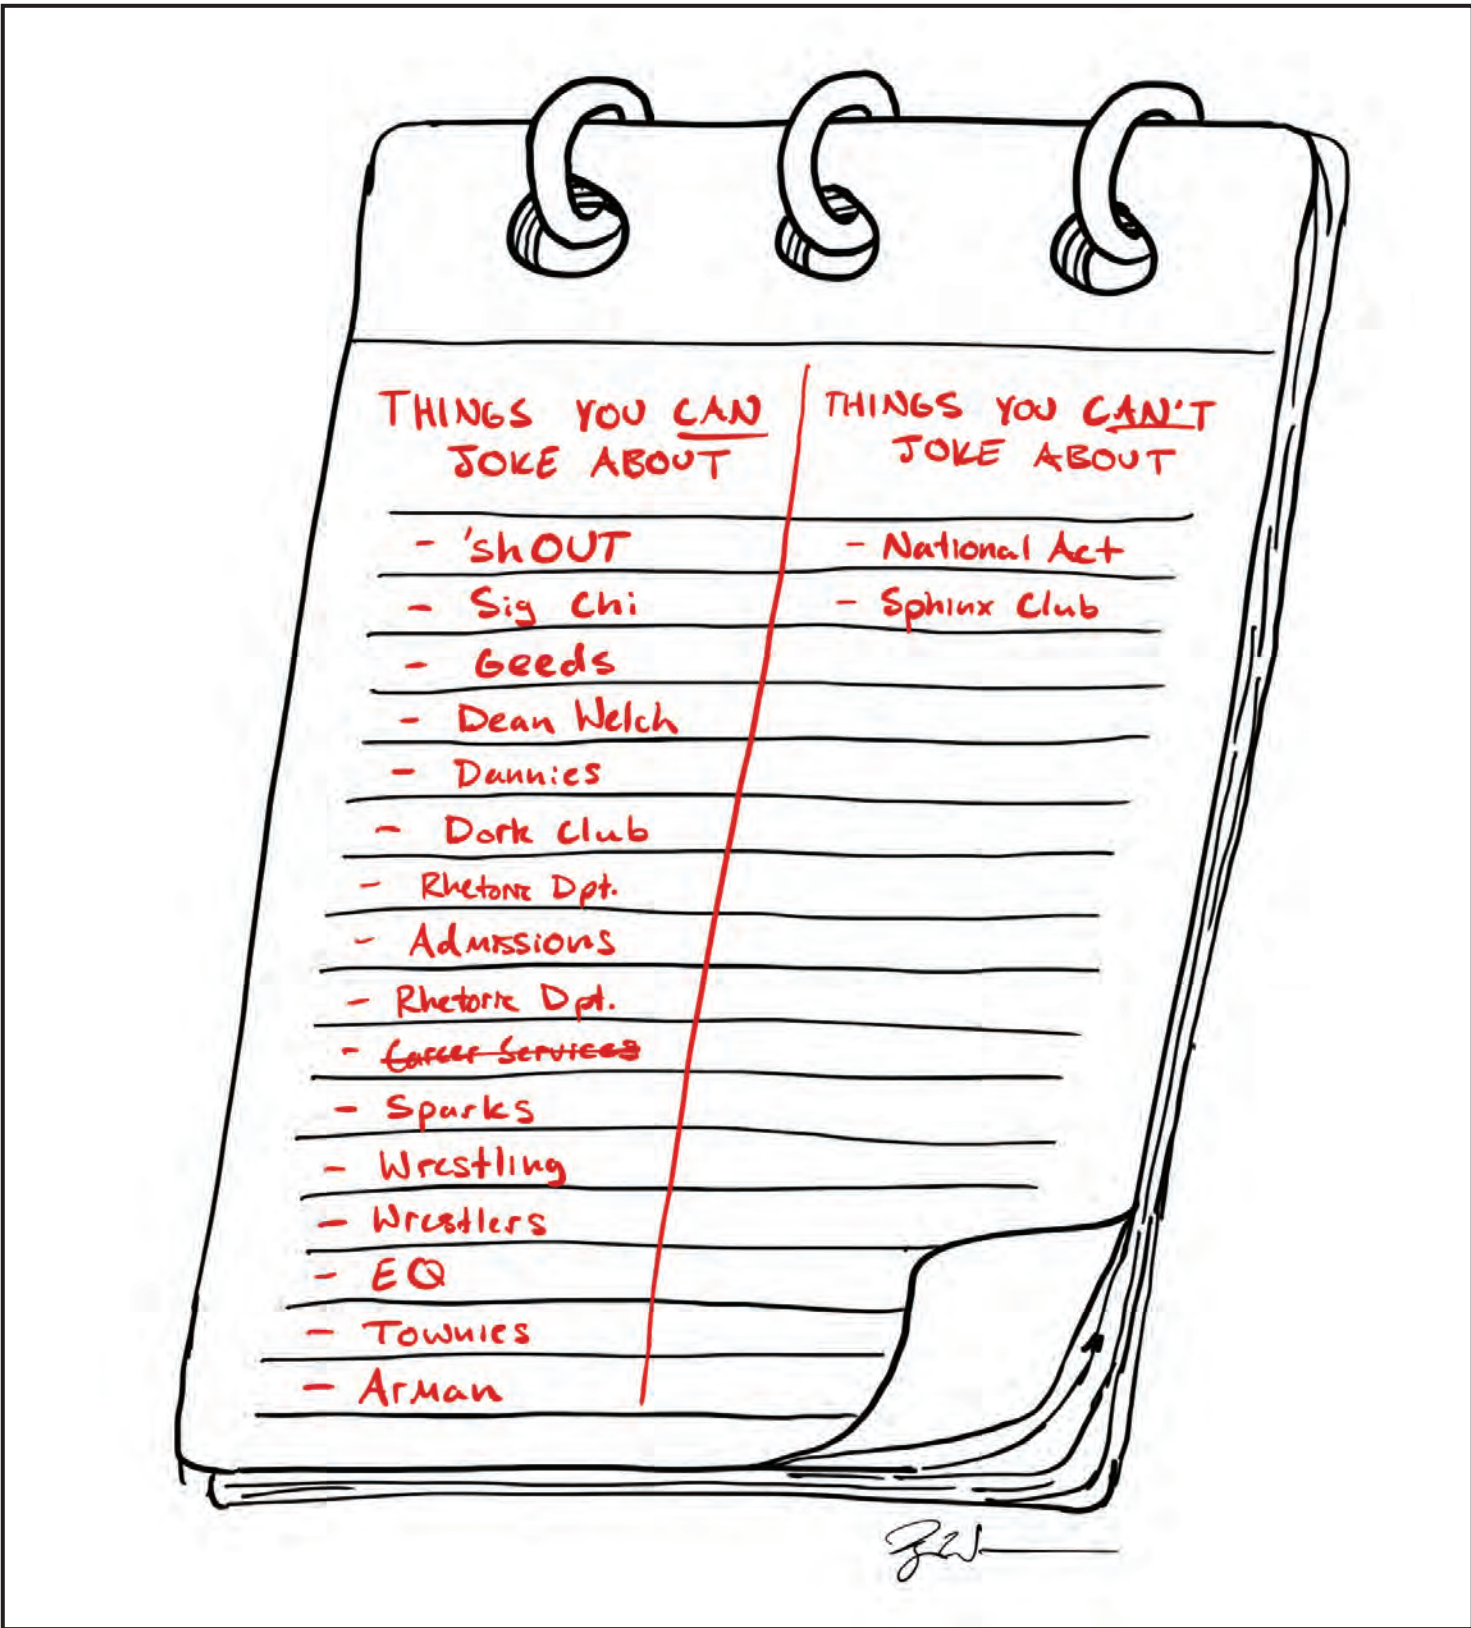 THINGS YOU CAN
JOKE ABOUT
- 'shOUT
- Sig Chi
- Geeds
- Dean Welch
- Dannies
- Dork Club
- Rhetoric Dpt.
- Admissions
- Rhetoric Dpt.
- Career Services
- Sparks
- Wrestling
- Wrestlers
- EQ
- Townies
- Arman
THINGS YOU CAN'T
JOKE ABOUT
- National Act
- Sphinx Club